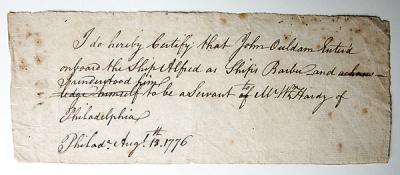 I do hereby Certify that John Ouldam Enterd
onboard the Ship Alfred as Ships Barber and acknow
I understood him
ledge himself to be a Servant to Mr. Wm. Hardy of
Philadelphia
Philada. Augt. 13th. 1776